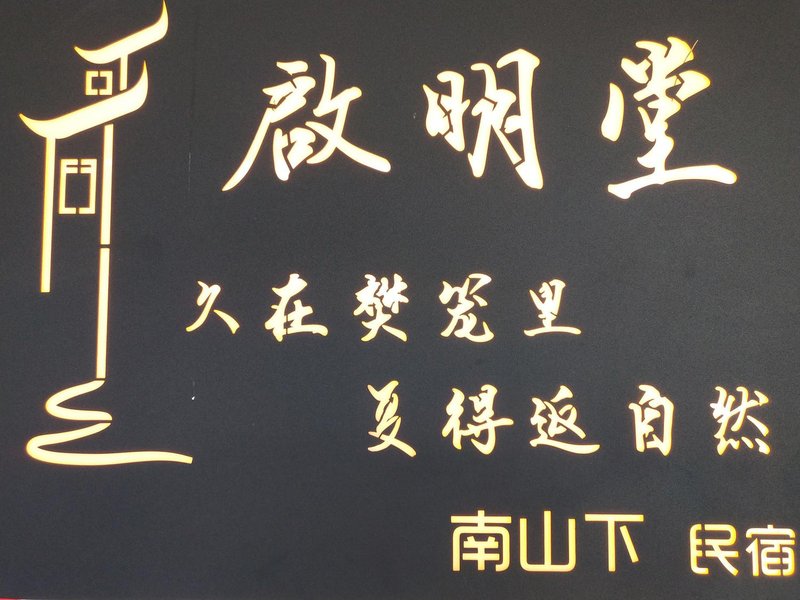 啟明堂
久在樊笼里
复得返自然
南山下 民宿